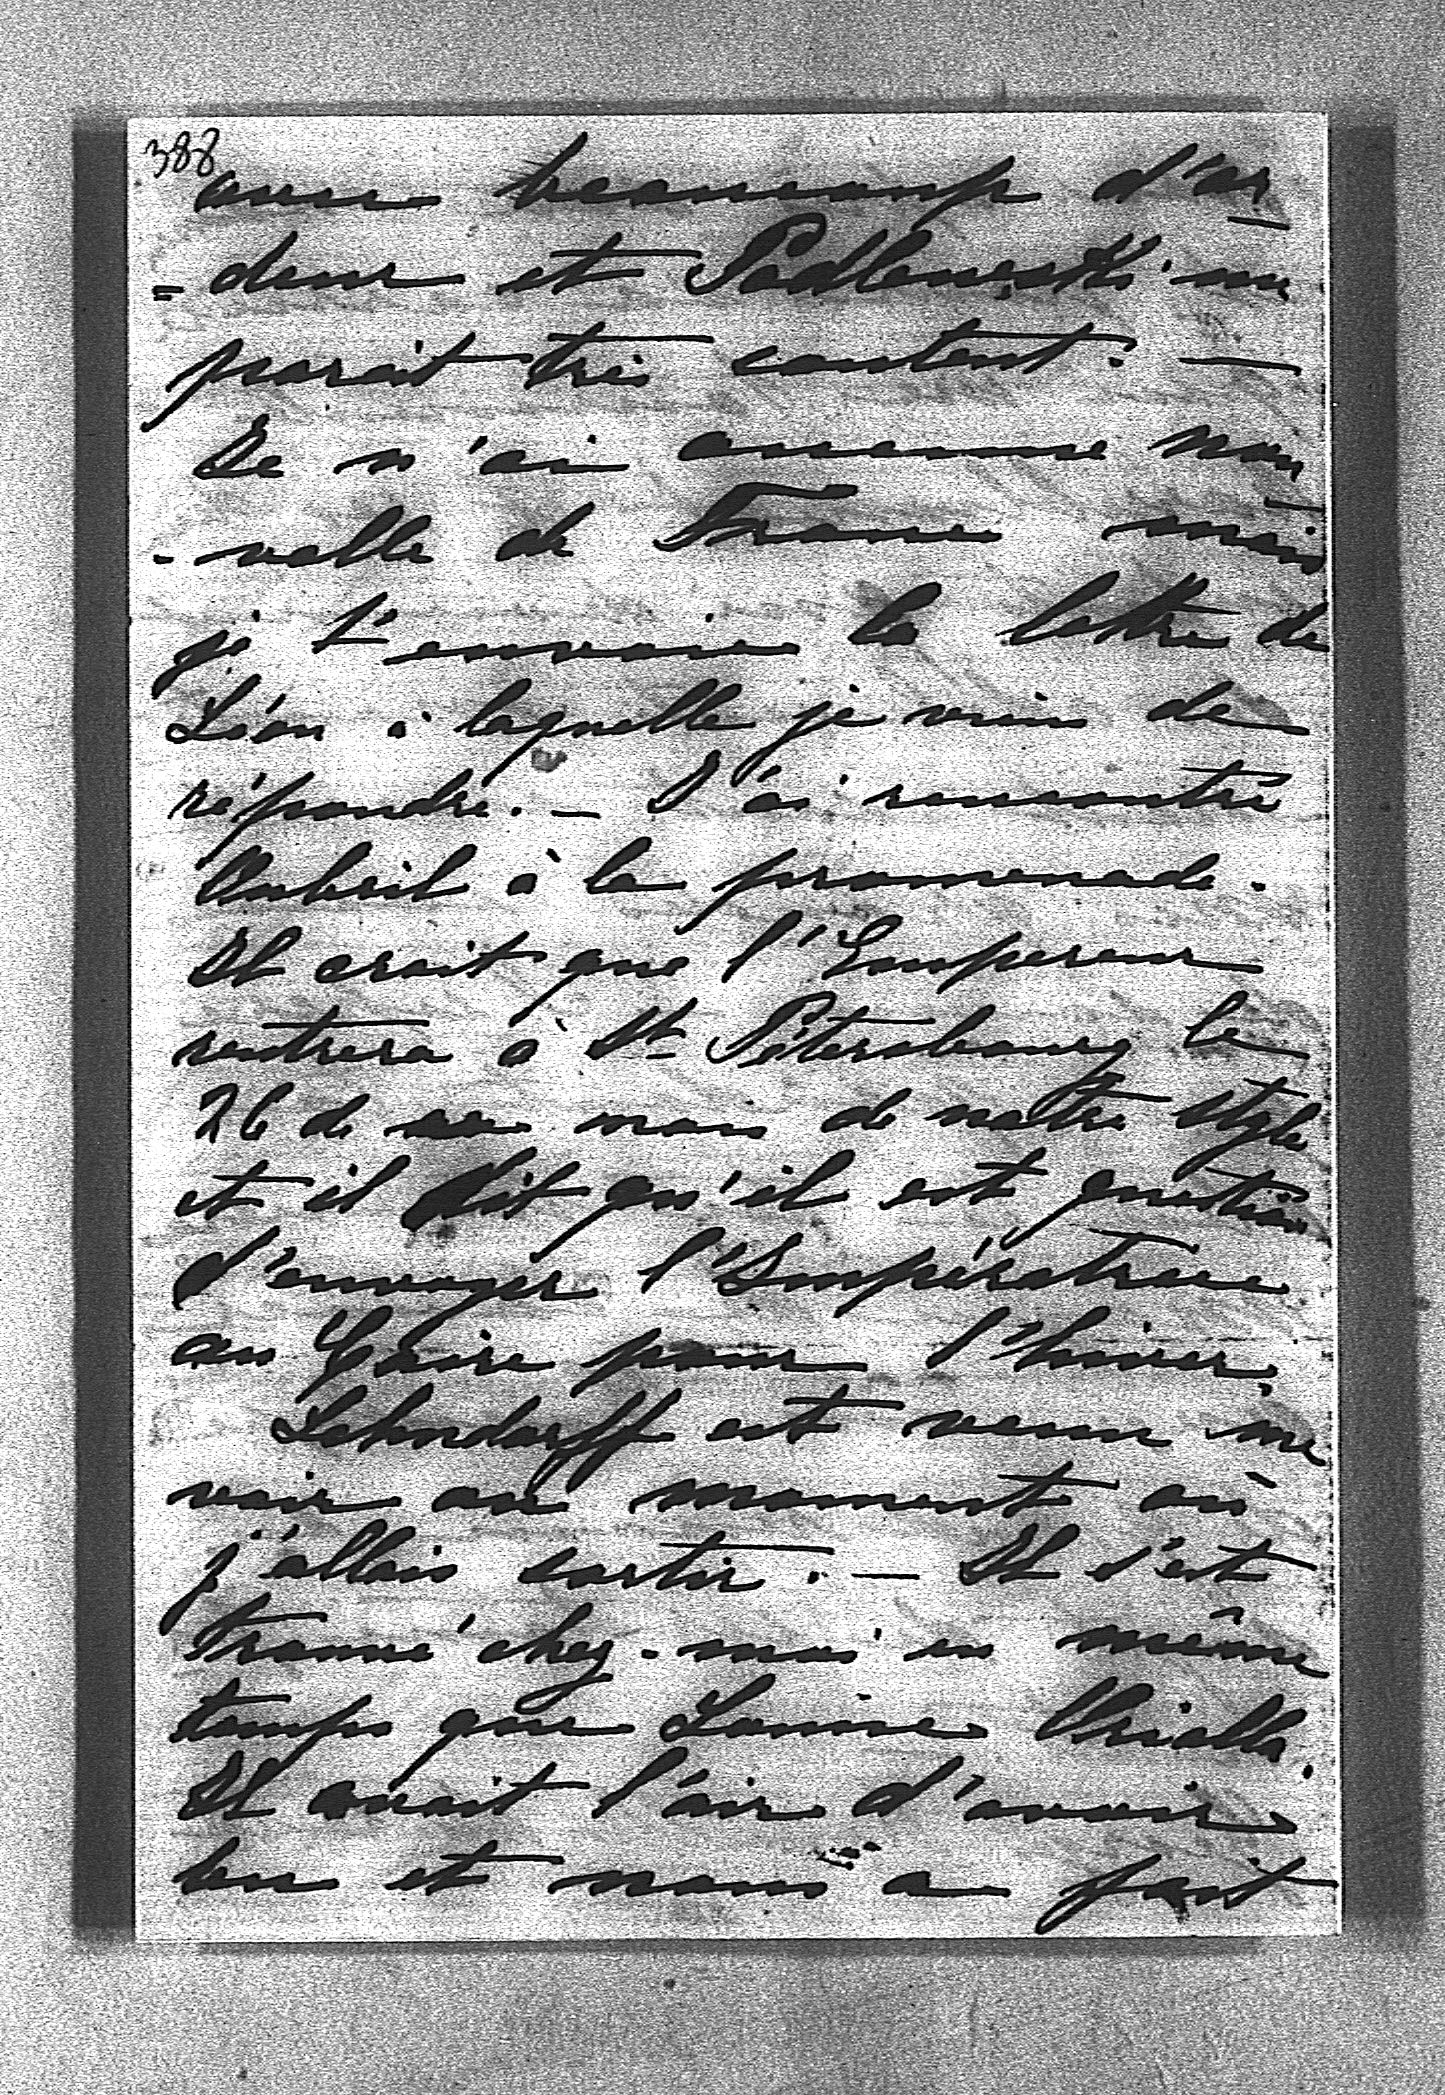 388
avec beaucoup d'ar
- deur et Podlewski me
parait très content. —
Je n'ai aucune nou
- velle de France mais
je t'envoie la lettre de
Léon à laquelle je viens de
répondre. — J'ai rencontré
à la promenade.
Il croit que l'Empereur
rentrera à St Pétersbourg le
26 de mois de notre style
et il dit qu'il est question
d'envoyer l'Impératrice
au Caire pour l'hiver.
Lehndorff est venu me
voir au moment où
j'allais sortir. — Il s'est
trouvé chez-moi en même
temps que Louise
Il avait l'air d'avoir
bu et nous a fait